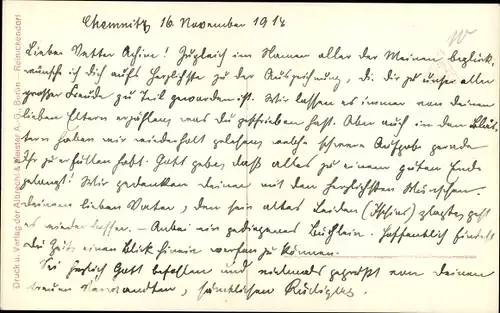 Chemnitz 16. November 1914
Lieber Vetter Achim! Zugleich im Namen aller der Meinen beglück-
wünsche ich dich aufs Herzlichste zu der Auszeichnung, die dir zu unser aller
grosser Freude zu Teil geworden ist. Wir lassen es immer von deinen
lieben Eltern erzählen, was du geschrieben hast. Aber auch in den Blät-
tern haben wir wiederholt gelesen, welche schwere Aufgabe gerade
Ihr zu erfüllen habt. Gott gebe, daß alles zu einem guten Ende
gelangt! Wir gedenken deiner mit den herzlichsten Wünschen.
Deinem lieben Vater, den sein altes Leiden (Ischias) plagte, geht
es wieder besser. - Anbei ein gediegenes Büchlein. Hoffentlich findest
du Zeit einen Blick hinein werfen zu können.
Sei herzlich Gott befohlen und vielmals gegrüßt von deinen
treuen Verwandten, sämtlichen
Druck u. Verlag der Albrecht & Meister A.-G., Berlin - Reinickendorf